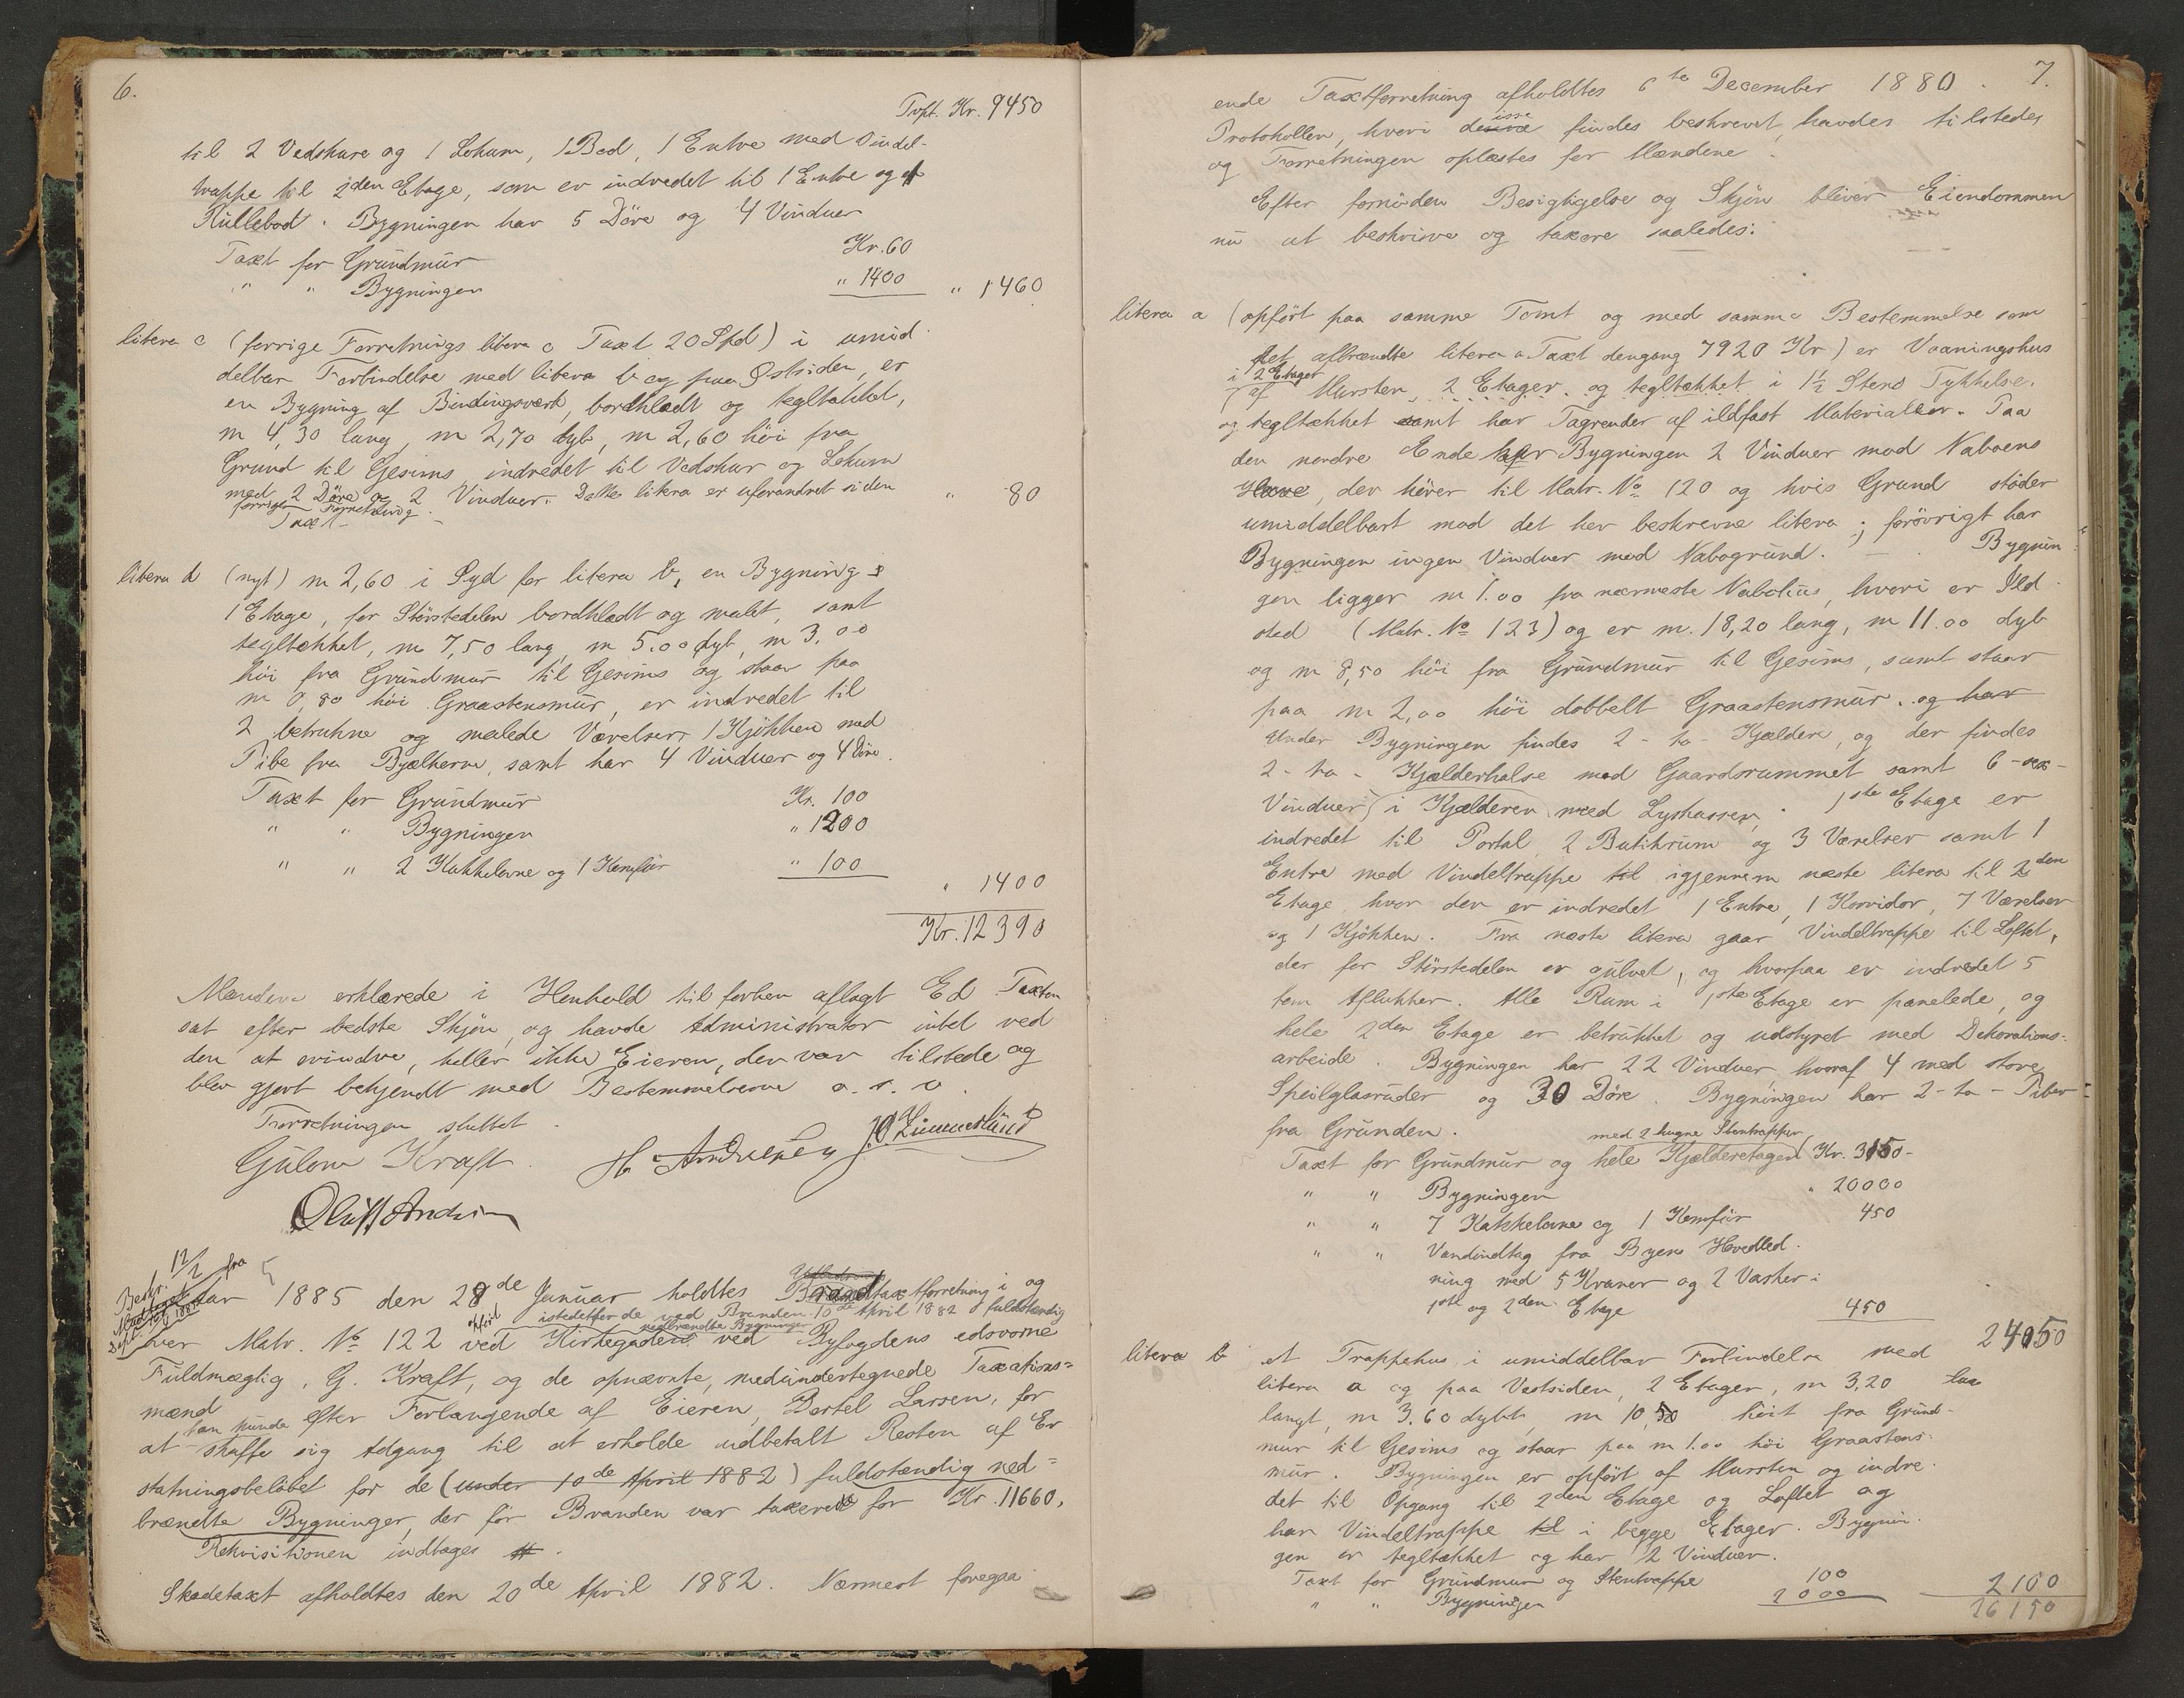 6.
Tvpt. Kr. 9450
til 2 Vedskure og 1 Lokum, 1 Bod, 1 Entre med Vindel-
trappe til 2den Etage, som er indredet til 1 Entre og
Rullebod. Bygningen har 5 Döre og 4 Vinduer
Taxt for Grundmur Kr. 60
" " Bygningen " 1400 " 1460
litera c (forrige Forretnings litera c Taxt 20 Spd) i umid-
delbar Forbindelse med litera b og paa Østsiden, er
en Bygning af Bindingsværk, bordklædt og tegltækket,
m 4,30 lang, m 2,70 dyb, m 2,60 höi fra
Grund til Gesims indredet til Vedskur og Lokum
med 2 Döre og 2 Vinduer. Dette litera er uforandret siden " 80
forrige Forretning
Taxt
litera d (nyt) m 2,60 i Syd for litera b, en Bygning i
1 Etage, for Störstedelen bordklædt og malet, samt
tegltækket, m 7,50 lang, m 5.00 dyb, m 3.00
höi fra Grundmur til Gesims og staar paa
m 0,80 höi Graastensmur, er indredet til
2 betrukne og malede Værelser, 1 Kjökken med
Pibe fra Bjælkerne, samt har 4 Vinduer og 4 Döre.
Taxt for Grundmur Kr. 100
" " Bygningen " 1200
" " 2 Kakkelovne og 1 Komfur " 100
" 1400
Kr. 12390
Mændene erklærede i Henhold til forhen aflagt Ed Taxten
sat efter bedste Skjön, og havde Administrator intet ved
den at erindre, heller ikke Eieren, der var tilstede og
blev gjort bekjendt med Bestemmelserne o. s. v.
Forretningen sluttet
Gulow Kraft. H Andresen J. O. Limmestand
Oluf Andersen
Aar 1885 den 28de Januar holdtes Brandtaxtforretning i og
istedetfor de ved Branden 10de April 1882 fuldstændig
nedbrændte Bygninger
over Matr. No 122 ved Kirkegaden ved Byfogdens edsvorne
Fuldmægtig, G. Kraft, og de opnævnte, medundertegnede Taxations-
mænd efter Forlangende af Eieren, Bertel Larsen, for
han kunde
at skaffe sig Adgang til at erholde udbetalt Resten af Er
statningsbelöbet for de (under 10de April 1882) fuldstændig ned-
brændte Bygninger, der för Branden var taxerede for Kr. 11660.
Rekvisitionen indtages #.
Skadetaxt afholdtes den 20de April 1882. Nærmest foregaa
7.
ende Taxtforretning afholdtes 6te December 1880.
Protokollen, hvori disse findes beskrevet, havdes tilstede
og Forretningen oplæstes for Mændene.
Efter fornöden Besigtigelse og Skjön bliver Eiendommen
nu at beskrive og taxere saaledes:
litera a (opfört paa samme Tomt og med samme Bestemmelse som
det afbrændte litera a Taxt dengang 7920 Kr) er Vaaningshus
i 2 Etager
af Mursten, 2 Etager, og tegltækket i 1½ Stens Tykkelse.
og tegltækket samt har Tagrender af ildfast Materialier. Paa
den nordre Ende har Bygningen 2 Vinduer mod Naboens
Have, der hörer til Matr. No 120 og hvis Grund stöder
umiddelbart mod det her beskrevne litera; forövrigt har
Bygningen ingen Vinduer mod Nabogrund. Bygnin-
gen ligger m 1.00 fra nærmeste Nabohus, hvori er Ild
sted (Matr. No 123) og er m. 18,20 lang, m 11.00 dyb
og m 8,50 höi fra Grundmur til Gesims, samt staar
paa m 2,00 höi dobbelt Graastensmur. og har
Under Bygningen findes 2 - to - Kjældere, og der findes
2 - to - Kjælderhalse mod Gaardsrummet samt 6 - sex -
Vinduer i Kjælderen med Lyskasser. 1ste Etage er
indredet til Portal, 2 Butikrum og 3 Værelser samt 1
Entre med Vindeltrappe til igjennem næste litera til 2den
Etage, hvor der er indredet 1 Entre, 1 Korridor, 7 Værelser
og 1 Kjökken. Fra næste litera gaar Vindeltrappe til Loftet,
der for Störstedelen er gulvet, og hvorpaa er indredet 5
fem Aflukker. Alle Rum i 1ste Etage er panelede, og
hele 2den Etage er betrukket og udstyret med Dekorations-
arbeide. Bygningen har 22 Vinduer, hvoraf 4 med store
Speilglasruder og 30 Döre. Bygningen har 2 - to - Piber
fra Grunden.
med 2 hugne Stentrapper
Taxt for Grundmur og hele Kjælderetagen Kr. 3150 -
" " Bygningen " 20000
" " 7 Kakkelovne og 1 Komfur 450
" " Vandindtag fra Byens Hovedled-
ning med 5 Kraner og 2 Vasker i
1ste og 2den Etage 450
24050
litera b et Trappehus i umiddelbar Forbindelse med
litera a og paa Vestsiden, 2 Etager, m 3,20
langt, m 3.60 dybt, m 10,50 höit fra Grund-
mur til Gesims og staar paa m 1.00 höi Graastens-
mur. Bygningen er opfört af Mursten og indre-
det til Opgang til 2den Etage og Loftet og
har Vindeltrappe til i begge Etager. Bygnin-
gen er tegltækket og har 2 Vinduer.
Taxt for Grundmur og Stentrappe 100
" " Bygningen 2000 2100
26150